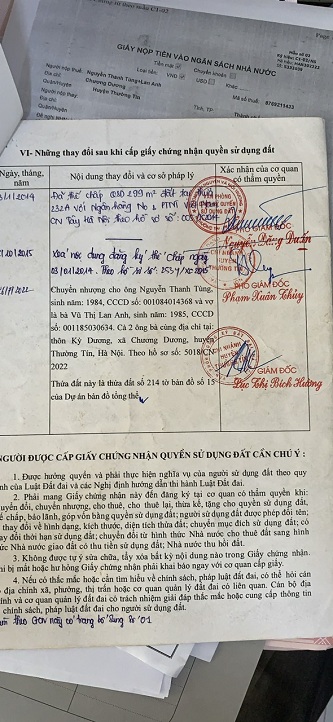 GIẤY NỘP TIỀN VÀO NGÂN SÁCH NHÀ NƯỚC
Tiền mặt
Chuyển khoản
Loại tiền: VND
USD
Người nộp thuế: Nguyễn Thanh Tùng+Lan Anh
Địa chỉ: Chương Dương
Huyện Thường Tín
Mã số thuế: 8769211423
Người nộp thay:
Địa chỉ:
Quận/Huyện
Tỉnh, TP:
VI- Những thay đổi sau khi cấp giấy chứng nhận quyền sử dụng đất
Ngày, tháng, năm
Nội dung thay đổi và cơ sở pháp lý
Xác nhận của cơ quan có thẩm quyền
/1/2014
299 m² đất tại thửa
232A với Ngân hàng No & PTNT
CN Tây Hà Nội theo hồ sơ số:
Nguyễn Đăng Duẩn
/10/2015
Xóa nội dung đăng ký thế chấp ngày
03/01/2014. Theo hồ sơ số
PHÓ GIÁM ĐỐC
Phạm Xuân Thủy
Chuyển nhượng cho ông Nguyễn Thanh Tùng,
sinh năm: 1984, CCCD số: 001084014368 và vợ
là bà Vũ Thị Lan Anh, sinh năm: 1985, CCCD
số: 001185030634. Cả 2 ông bà cùng địa chỉ tại:
thôn Kỳ Dương, xã Chương Dương, huyện
Thường Tín, Hà Nội. Theo hồ sơ số: 5018/CN
2022
GIÁM ĐỐC
Lục Thị Bích Hường
Thửa đất này là thửa đất số 214 tờ bản đồ số 15
của Dự án bản đồ tổng thể
NGƯỜI ĐƯỢC CẤP GIẤY CHỨNG NHẬN QUYỀN SỬ DỤNG ĐẤT CẦN CHÚ Ý :
1. Được hưởng quyền và phải thực hiện nghĩa vụ của người sử dụng đất theo quy
định của Luật Đất đai và các Nghị định hướng dẫn thi hành Luật Đất đai.
2. Phải mang Giấy chứng nhận này đến đăng ký tại cơ quan có thẩm quyền khi:
chuyển đổi, chuyển nhượng, cho thuê, cho thuê lại, thừa kế, tặng cho quyền sử dụng đất,
thế chấp, bảo lãnh, góp vốn bằng quyền sử dụng đất; người sử dụng đất được phép đổi tên;
thay đổi về hình dạng, kích thước, diện tích thửa đất; chuyển mục đích sử dụng đất; có
thay đổi thời hạn sử dụng đất; chuyển đổi từ hình thức Nhà nước cho thuê đất sang hình
thức Nhà nước giao đất có thu tiền sử dụng đất; Nhà nước thu hồi đất.
3. Không được tự ý sửa chữa, tẩy xóa bất kỳ nội dung nào trong Giấy chứng nhận.
Khi bị mất hoặc hư hỏng Giấy chứng nhận phải khai báo ngay với cơ quan cấp giấy.
4. Nếu có thắc mắc hoặc cần tìm hiểu về chính sách, pháp luật đất đai, có thể hỏi cán
bộ địa chính xã, phường, thị trấn hoặc cơ quan quản lý đất đai có liên quan. Cán bộ địa
chính và cơ quan quản lý đất đai có trách nhiệm giải đáp thắc mắc hoặc cung cấp thông tin
về chính sách, pháp luật đất đai cho người sử dụng đất.
theo GCN này có trang bổ sung số 01